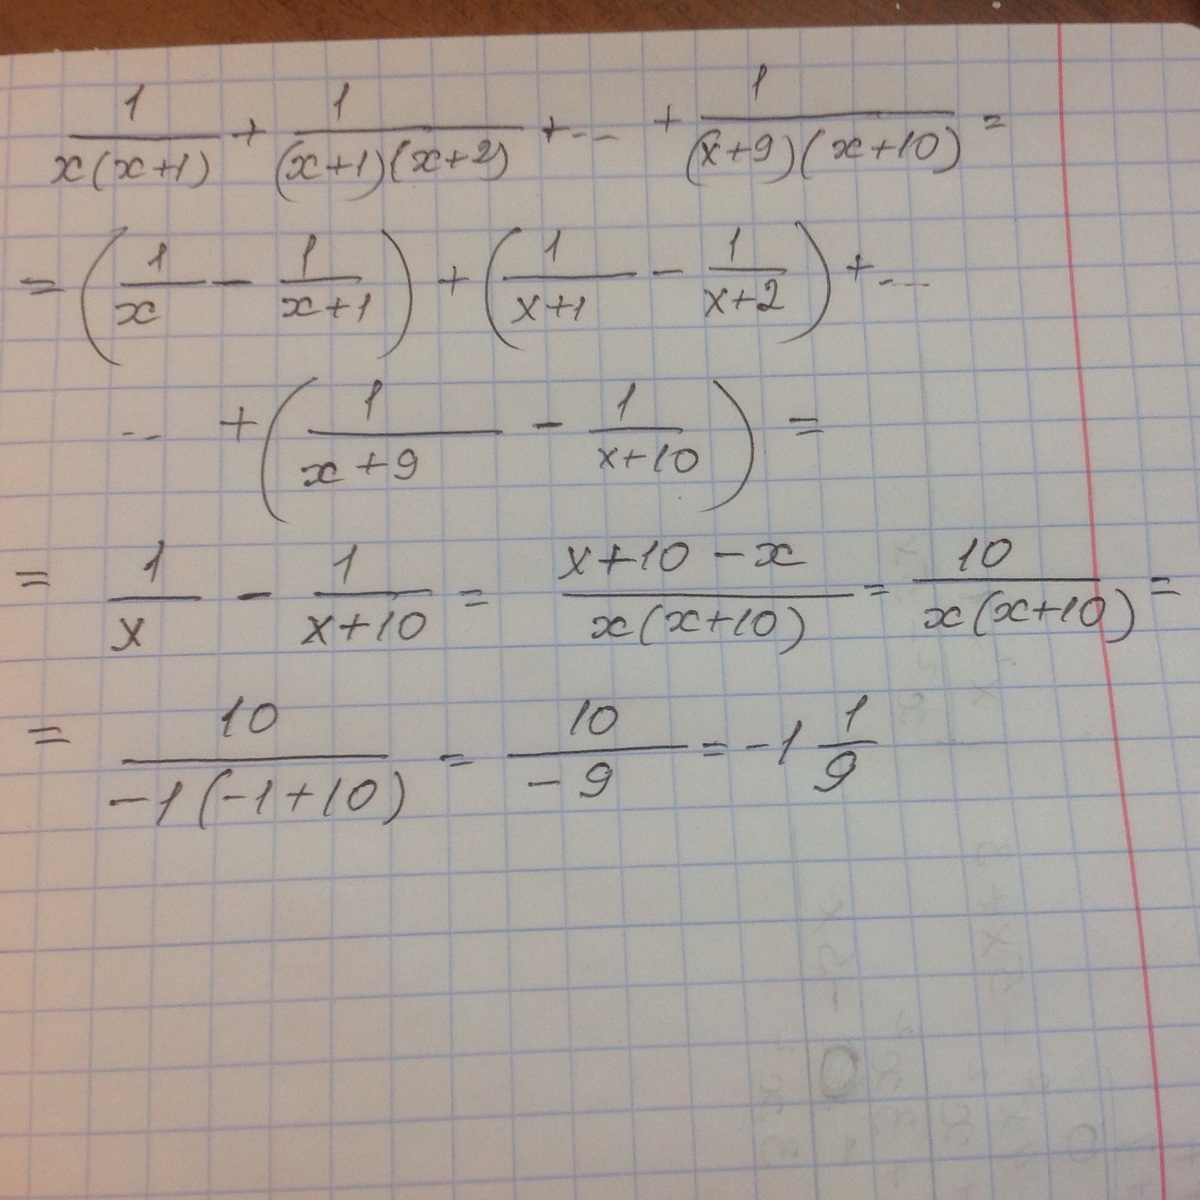 1/(x(x+1)) + 1/((x+1)(x+2)) + ... + 1/((x+9)(x+10)) =
= (1/x - 1/(x+1)) + (1/(x+1) - 1/(x+2)) + ...
.. + (1/(x+9) - 1/(x+10)) =
= 1/x - 1/(x+10) = (x+10-x)/(x(x+10)) = 10/(x(x+10)) =
= 10/(-1(-1+10)) = 10/(-9) = -1 1/9